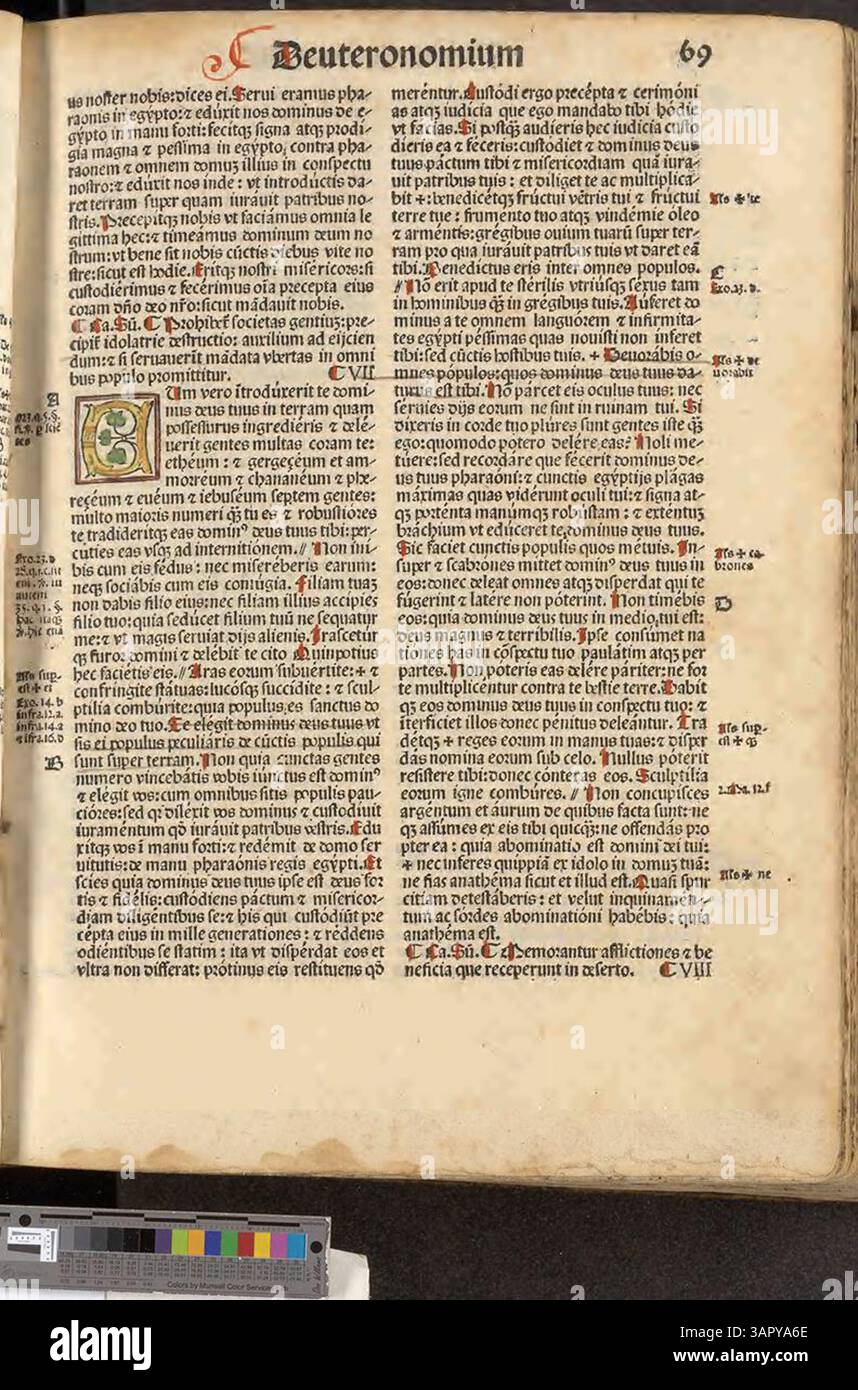 Deuteronomium
69
us noster nobis: dices ei. Serui eramus pha-
raonis in egypto: ⁊ eduxit nos dominus de e-
gypto in manu forti: fecitq̃ signa atq̃ prodi-
gia magna ⁊ pessima in egypto, contra pha-
raonem ⁊ omnem domuȝ illius in conspectu
nostro: ⁊ eduxit nos inde: vt introductis da-
ret terram super quam iurauit patribus no-
stris. Precepitq̃ nobis vt faciamus omnia le
gittima hec: ⁊ timeamus dominum deum no
strum: vt bene sit nobis cũctis diebus vite no
stre: sicut est hodie. Eritq̃ nostri misericors: si
custodierimus ⁊ fecerimus oĩa precepta eius
coram dño deo nr̃o: sicut mãdauit nobis.
¶ Ca. Sũ. ¶ Prohibet̃ societas gentiuȝ: pre-
cipit̃ idolatrie destructio: auxilium ad eijcien
dum: ⁊ si seruauerit mãdata vbertas in omni
bus populo promittitur. ¶ VII
A
CUm vero ĩtroduxerit te domi-
nus deus tuus in terram quam
possessurus ingredieris ⁊ dele-
uerit gentes multas coram te:
etheum: ⁊ gergeçeum ⁊ am-
morreum ⁊ chananeum ⁊ phe-
reçeum ⁊ eueum ⁊ iebuseum septem gentes:
multo maioris numeri q̃ tu es ⁊ robustiores
te tradideritq̃ eas domin⁹ deus tuus tibi: per-
cuties eas vsq̃ ad internitionem. // Non ini-
bis cum eis fedus: nec misereberis earum:
neq̃ sociabis cum eis coniugia. Filiam tuaȝ
non dabis filio eius: nec filiam illius accipies
filio tuo: quia seducet filium tuũ ne sequatur
me: ⁊ vt magis seruiat dijs alienis. Irascetur
q̃ furor domini ⁊ delebit te cito Quinpotius
hec facietis eis. // Aras eorum subuertite: + ⁊
confringite statuas: lucosq̃ succidite: ⁊ scul-
ptilia comburite: quia populus es sanctus do
mino deo tuo. Te elegit dominus deus tuus vt
sis ei populus peculiaris de cũctis populis qui
sunt super terram. Non quia cunctas gentes
numero vincebatis vobis iunctus est domin⁹
⁊ elegit vos: cum omnibus sitis populis pau-
ciores: sed qr̃ dilexit vos dominus ⁊ custodiuit
iuramentum qđ iurauit patribus vestris. Edu
xitq̃ vos ĩ manu forti: ⁊ redemit de domo ser
uitutis: de manu pharaonis regis egypti. Et
scies quia dominus deus tuus ipse est deus for
tis ⁊ fidelis: custodiens pactum ⁊ misericor-
diam diligentibus se: ⁊ his qui custodiũt pre
cepta eius in mille generationes: ⁊ reddens
odientibus se statim: ita vt disperdat eos et
vltra non differat: protinus eis restituens qđ
Exo.23.d
Exo.14.b
infra.12.a.
infra.14.a
B
merentur. Custodi ergo precepta ⁊ cerimoni
as atq̃ iudicia que ego mandabo tibi hodie
vt facias. Si postq̃ audieris hec iudicia custo
dieris ea ⁊ feceris: custodiet ⁊ dominus deus
tuus pactum tibi ⁊ misericordiam quã iura-
uit patribus tuis: et diliget te ac multiplica-
bit +: benedicetq̃ fructui vẽtris tui ⁊ fructui
terre tue: frumento tuo atq̃ vindemie oleo
⁊ armentis: gregibus ouium tuarũ super ter-
ram pro qua iurauit patribus tuis vt daret eã
tibi. Benedictus eris inter omnes populos.
// Nõ erit apud te sterilis vtriusq̃ sexus tam
in hominibus q̃ in gregibus tuis. Auferet do
minus a te omnem languorem ⁊ infirmita-
tes egypti pessimas quas nouisti non inferet
tibi: sed cũctis hostibus tuis. + Deuorabis o-
mnes populos: quos dominus deus tuus da-
turus est tibi. Nõ parcet eis oculus tuus: nec
seruies dijs eorum ne sint in ruinam tui. Si
dixeris in corde tuo plures sunt gentes iste q̃
ego: quomodo potero delere eas? Noli me-
tuere: sed recordare que fecerit dominus de-
us tuus pharaoni: ⁊ cunctis egyptijs plagas
maximas quas viderunt oculi tui: ⁊ signa at-
q̃ portenta manumq̃ robustam: ⁊ extentuȝ
brachium vt educeret te dominus deus tuus.
Sic faciet cunctis populis quos metuis. In-
super ⁊ scabrones mittet domin⁹ deus tuus in
eos: donec deleat omnes atq̃ disperdat qui te
fugerint ⁊ latere non poterint. Non timebis
eos: quia dominus deus tuus in medio tui est:
deus magnus ⁊ terribilis. Ipse consumet na
tiones has in cõspectu tuo paulatim atq̃ per
partes. Non poteris eas delere pariter: ne for
te multiplicentur contra te bestie terre. Dabit
q̃ eos dominus deus tuus in conspectu tuo: ⁊
ĩterficiet illos donec penitus deleantur. Tra
detq̃ + reges eorum in manus tuas: ⁊ disper
das nomina eorum sub celo. Nullus poterit
resistere tibi: donec conteras eos. Sculptilia
eorum igne combures. // Non concupisces
argentum et aurum de quibus facta sunt: ne
q̃ assumes ex eis tibi quicq̃: ne offendas pro
pter ea: quia abominatio est domini dei tui:
+ nec inferes quippiã ex idolo in domuȝ tuã:
ne fias anathema sicut et illud est. Quasi spur
citiam detestaberis: et velut inquinamen-
tum ac sordes abominationi habebis: quia
anathema est.
¶ Ca. Sũ. ¶ Memorantur afflictiones ⁊ be
neficia que receperunt in deserto. ¶ VIII
Als + te
C
Exo.23.d.
Als + de
uorabis
Als + ca-
brones
D
Als sup-
est + q̃
2.Ma.12.f
Als + ne
Colors by Munsell Color Services
alamy
Image ID: 3APYA6E
www.alamy.com